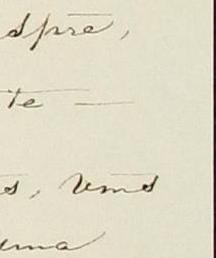 spre,
te —
s, Vms
uma